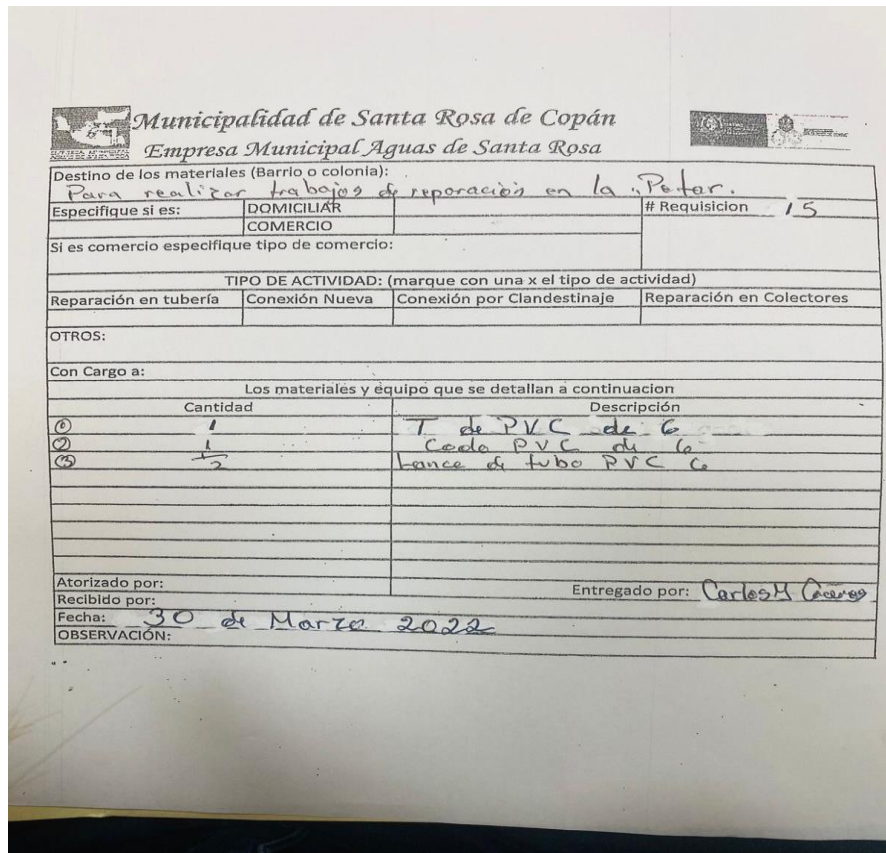 Municipalidad de Santa Rosa de Copán
Empresa Municipal Aguas de Santa Rosa
Destino de los materiales (Barrio o colonia):
Para realizar trabajos de reparación en la
Especifique si es: DOMICILIAR # Requisicion 15
COMERCIO
Si es comercio especifique tipo de comercio:
TIPO DE ACTIVIDAD: (marque con una x el tipo de actividad)
Reparación en tubería Conexión Nueva Conexión por Clandestinaje Reparación en Colectores
OTROS:
Con Cargo a:
Los materiales y equipo que se detallan a continuacion
Cantidad Descripción
① 1 T de PVC de 6
② 1 Codo PVC de 6
③ 1/2 Lance de tubo PVC 6
Atorizado por:
Entregado por: Carlos M
Recibido por:
Fecha: 30 de Marzo 2022
OBSERVACIÓN: